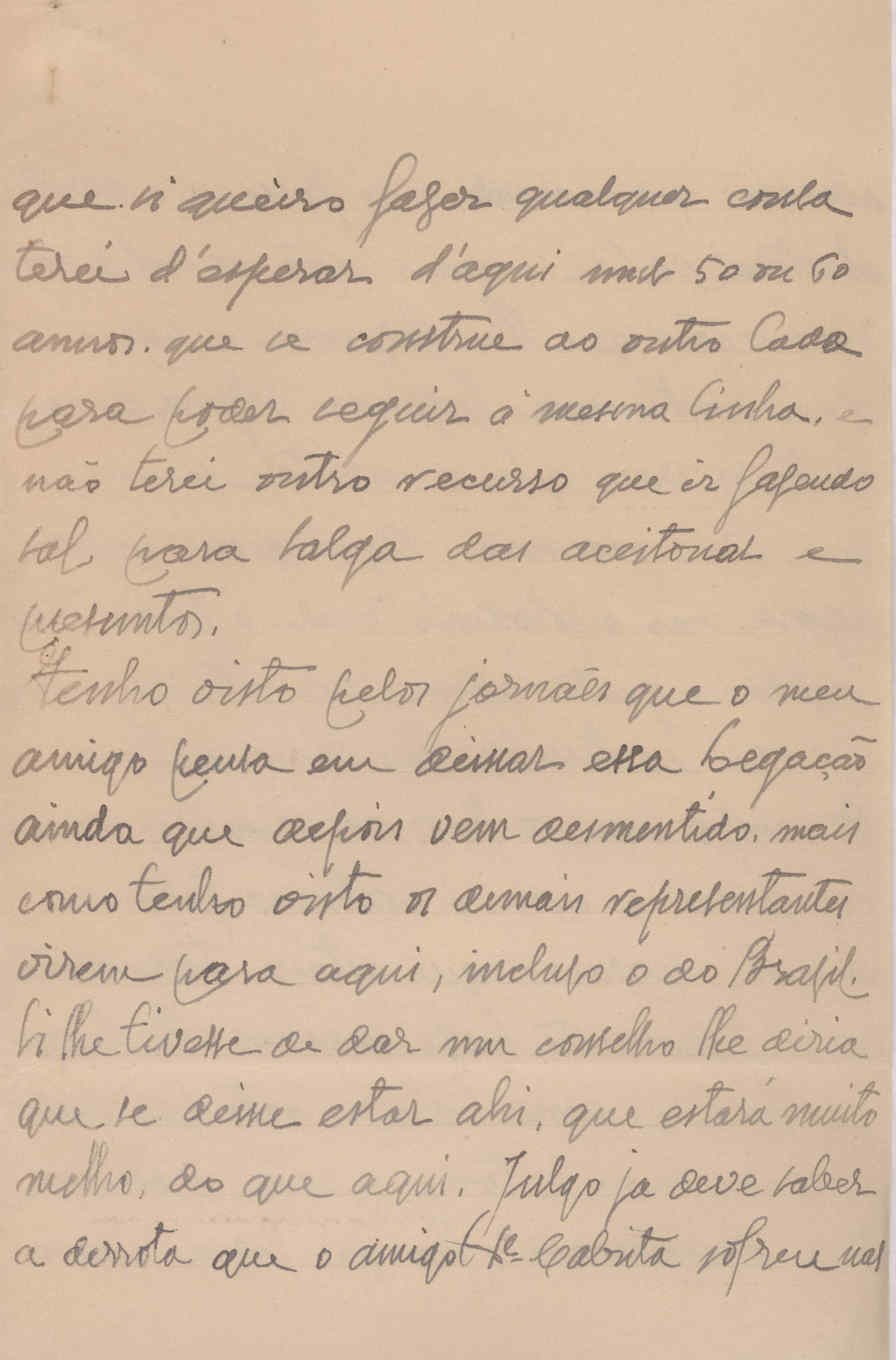 que si queiro fazer qualquer consa
terei d'esperar d'aqui uns 50 ou 60
annos. que se construe ao outro Cado
para poder seguir a mesma linha. e
não terei outro recurso que ir fazendo
sal para salga das aceitonas e
presuntos.
Tenho visto pelos jornaês que o meu
amigo pensa em deixar essa Legação
ainda que depois vem desmentido. mais
como tenho visto os demais representantes
virem para aqui, incluso o do Brazil.
Si lhe tivesse de dar um conselho lhe diria
que se deixe estar ahi, que estará muito
melho, do que aqui. Julgo ja deve saber
a derrota que o amigo Cabrita sofreu nas